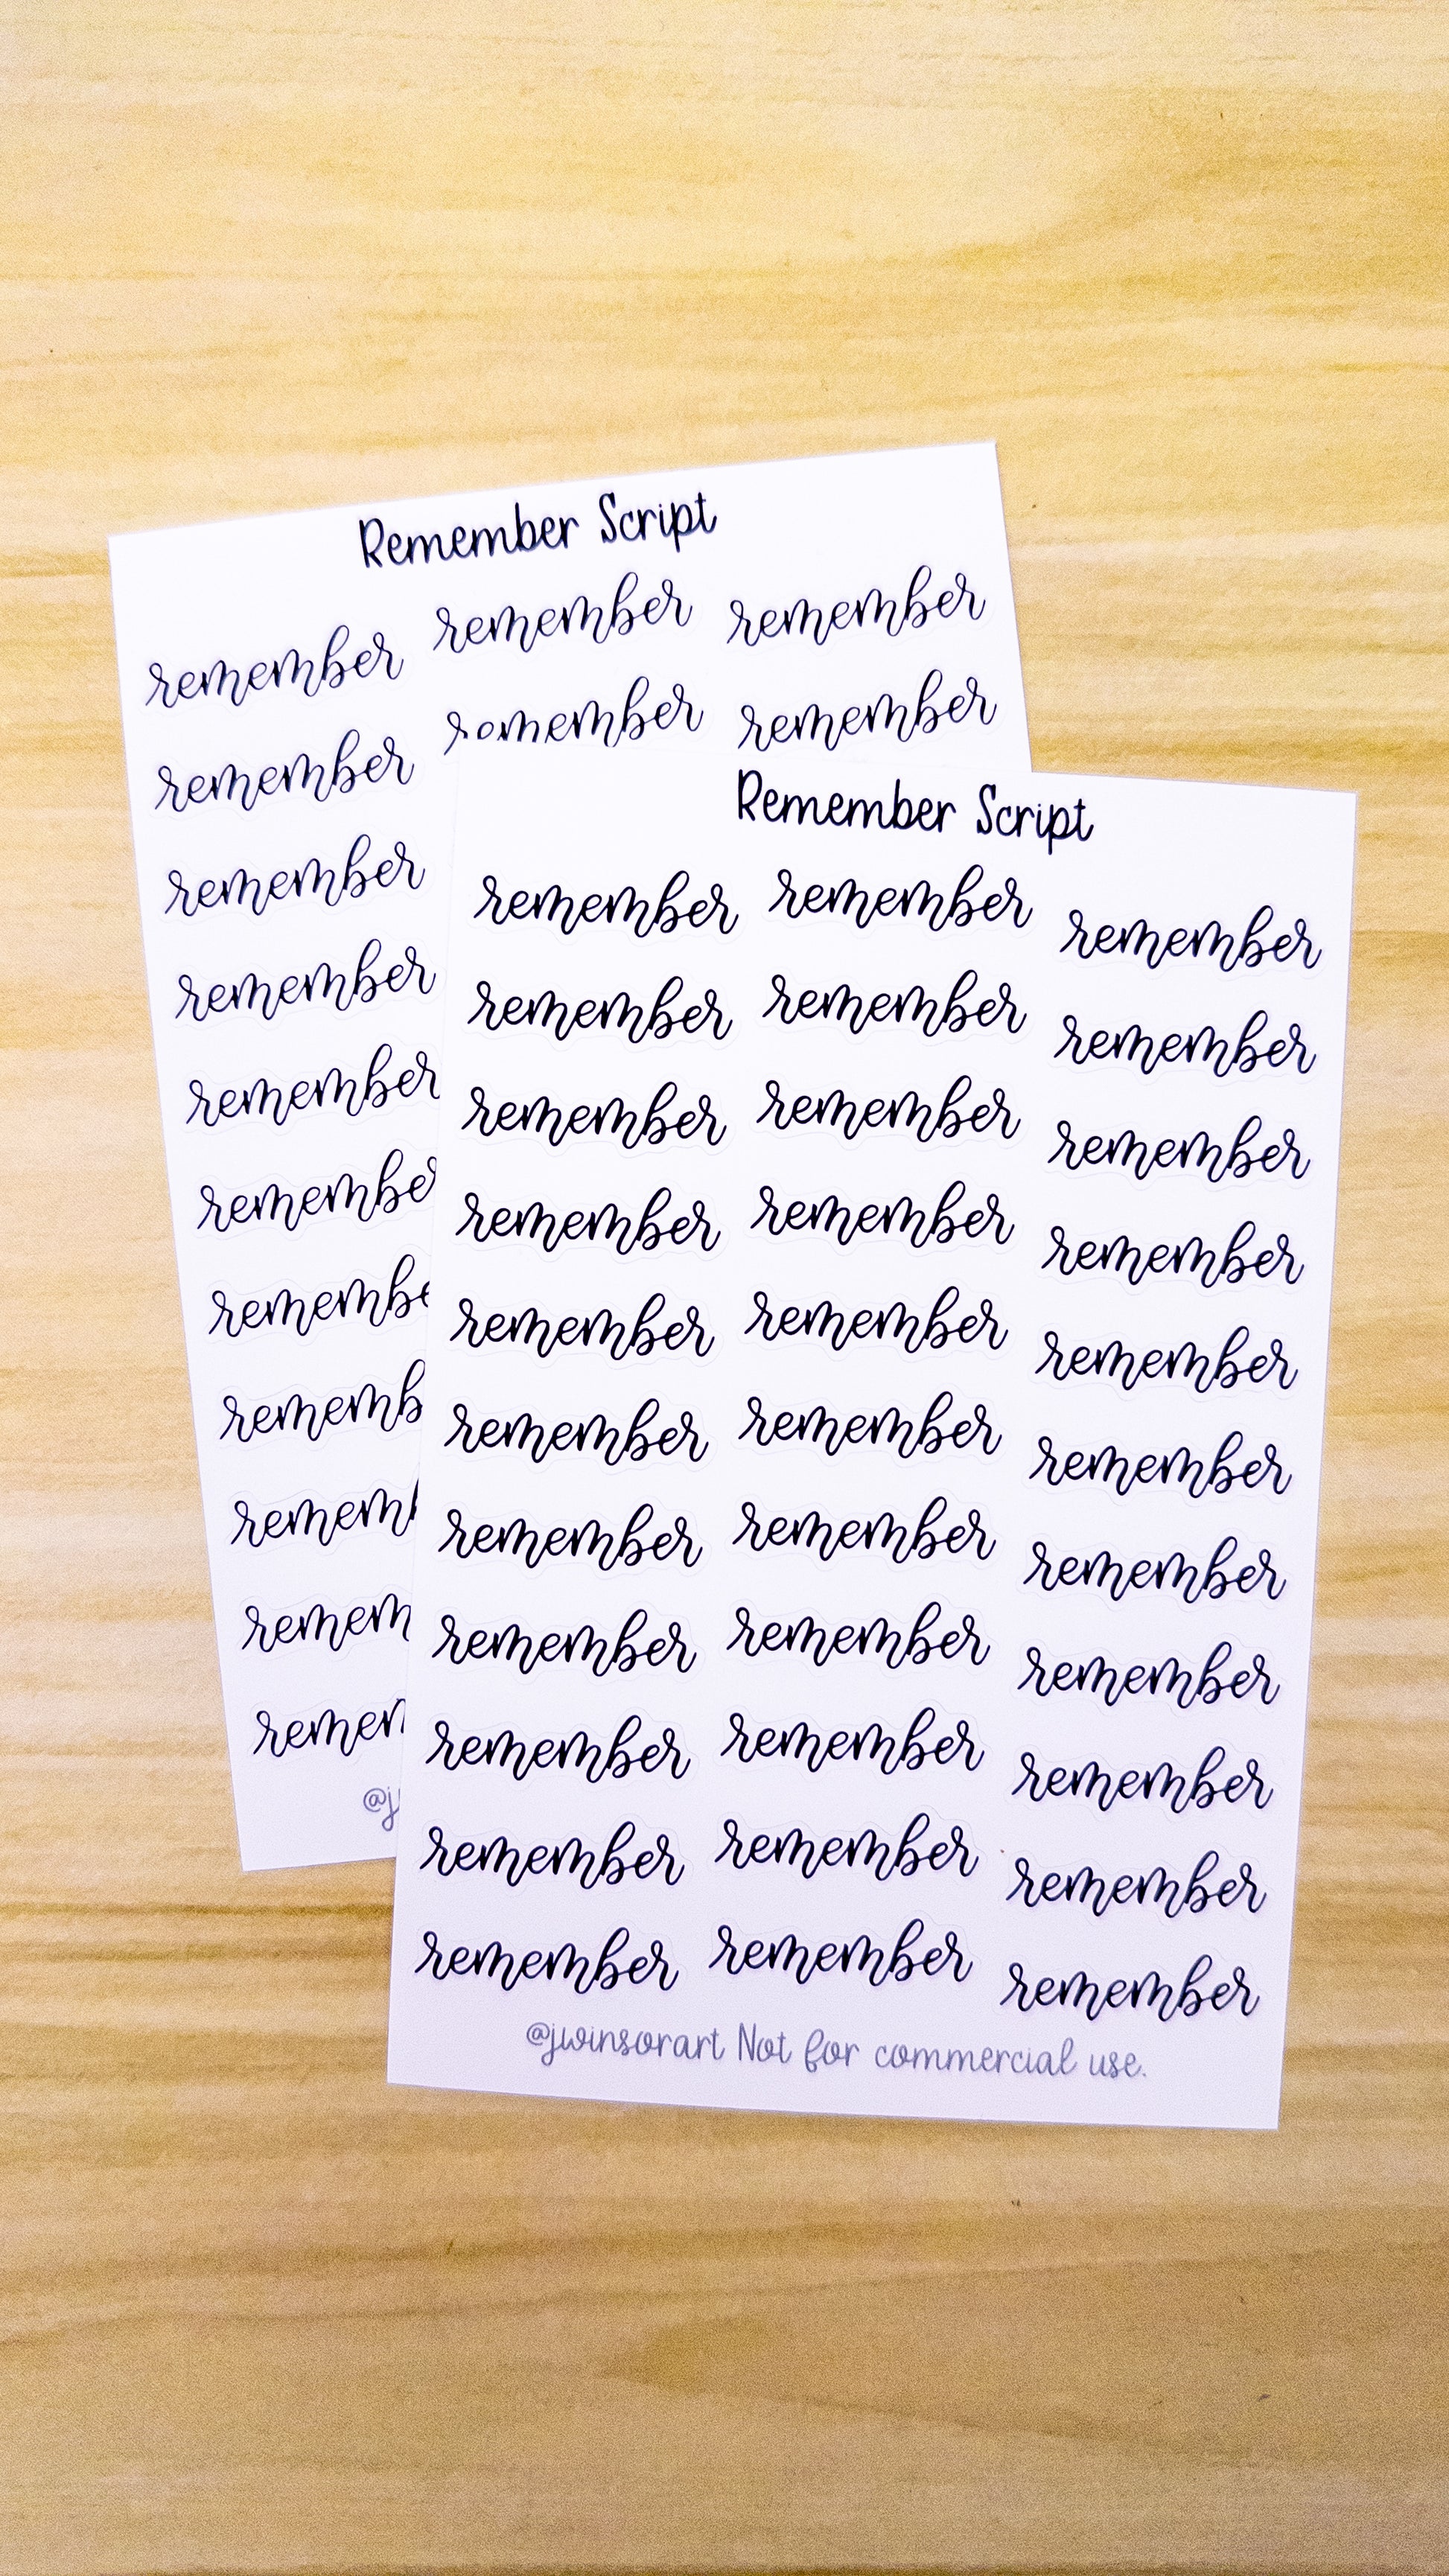 Remember Script
remember remember remember
remember remember remember
remember
remember
remember
remember
remembe
rememb
remem
remem
reme
@j
Remember Script
remember remember remember
remember remember remember
remember remember remember
remember remember remember
remember remember remember
remember remember remember
remember remember remember
remember remember remember
remember remember remember
remember remember remember
remember remember remember
@jwinsorart Not for commercial use.